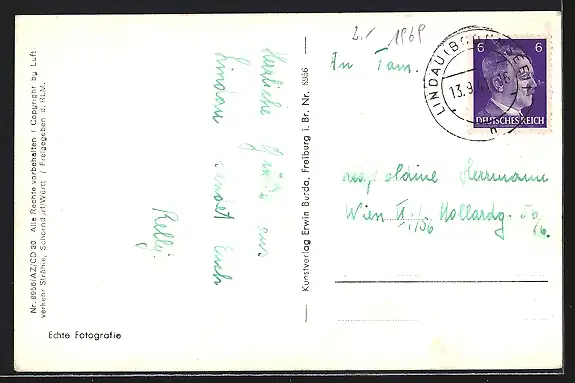 Nr. 8956/AZ/CD 30 Alle Rechte vorbehalten / Copyright by Luft-
verkehr Strähle, Schorndorf/Württ / Freigegeben d. RLM.
Herzliche Grüße aus
Lindau sendet Euch
Relly.
Echte Fotografie
Kunstverlag Erwin Burda, Freiburg i. Br. Nr. 8956
1969
An Fam.
LINDAU (BODENSEE)
13.9.
6 6
DEUTSCHES REICH
Leopoldine Herrmann
Wien II. Hollardg.